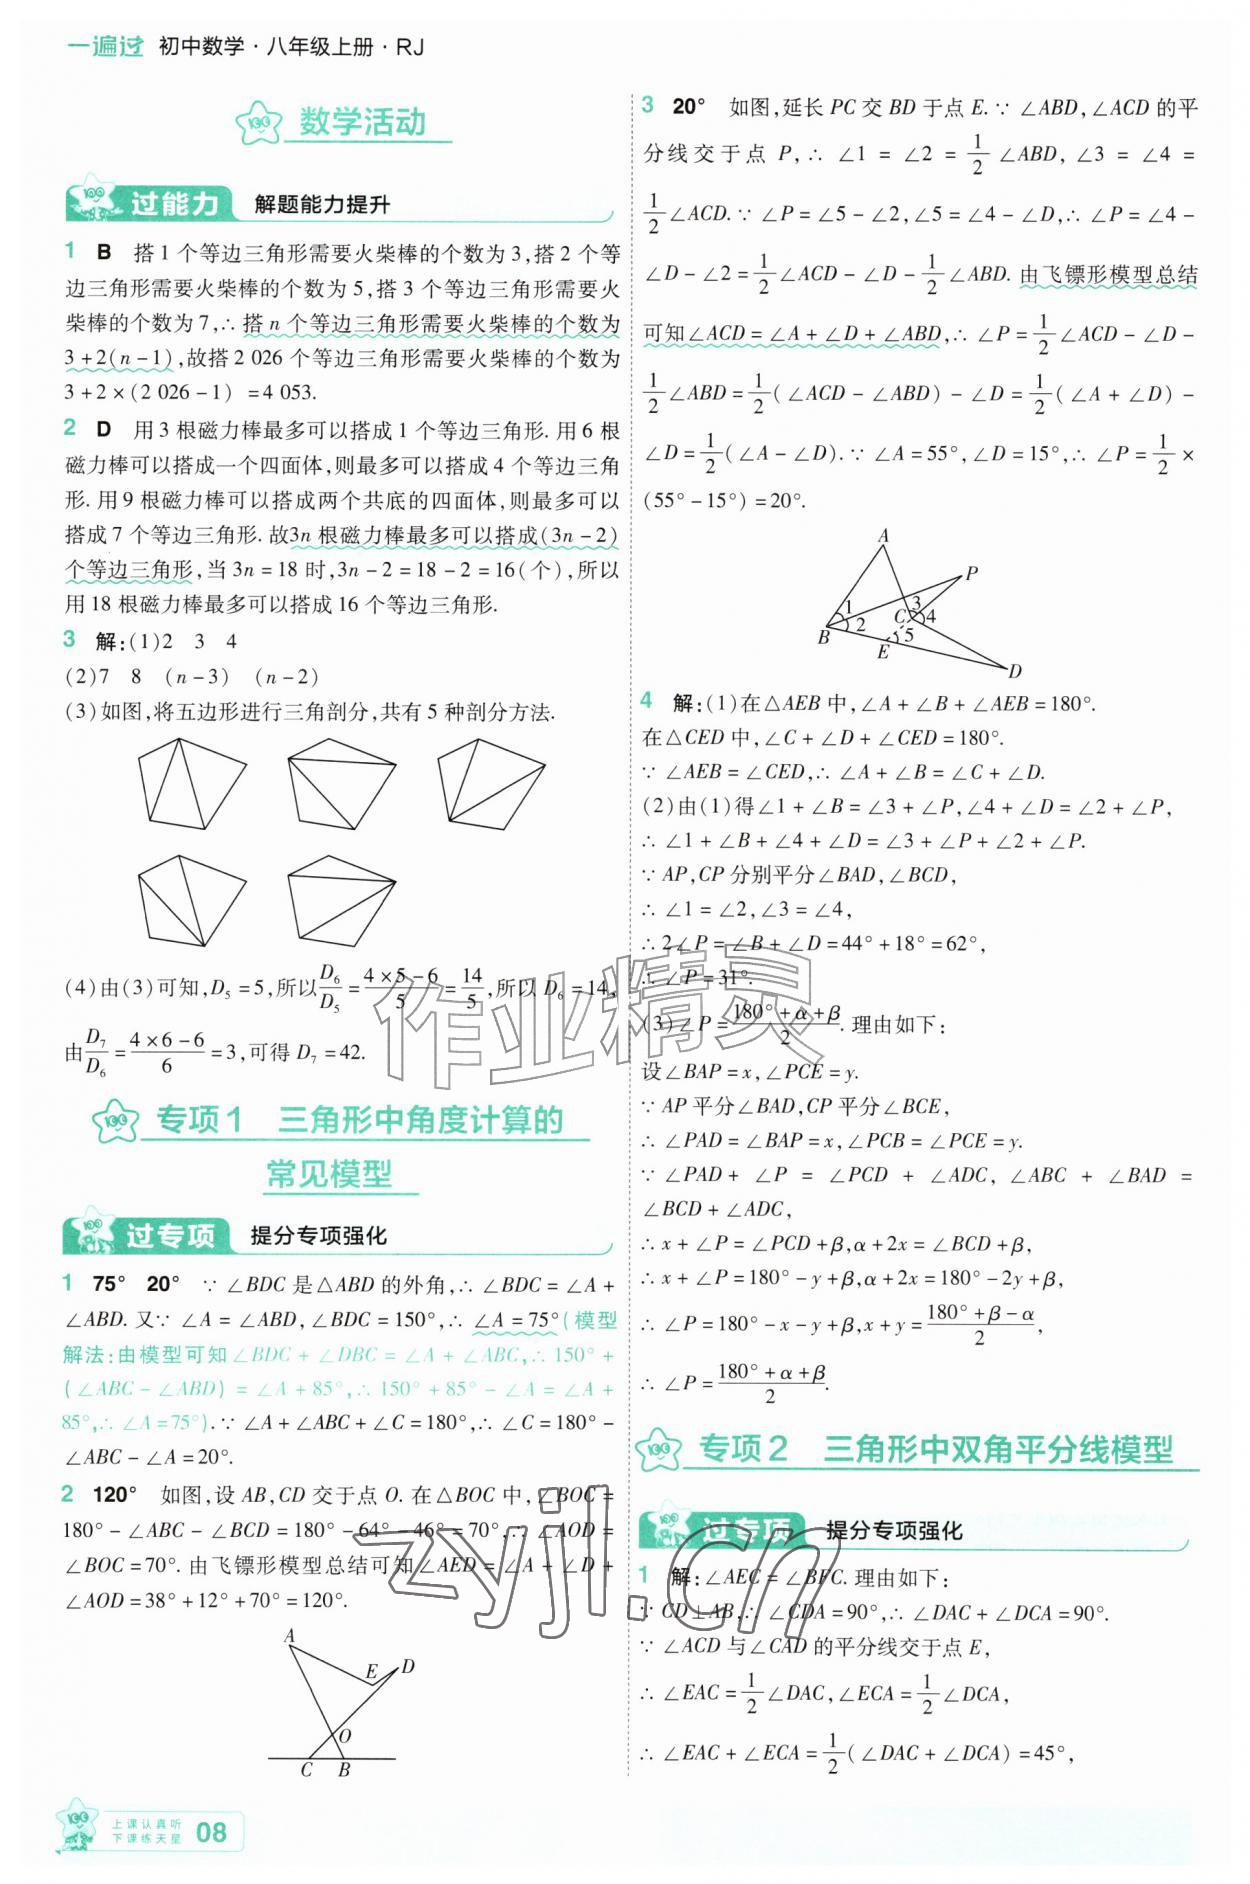 一遍过 初中数学·八年级上册·RJ
数学活动
过能力 解题能力提升
1 B 搭1个等边三角形需要火柴棒的个数为3,搭2个等
边三角形需要火柴棒的个数为5,搭3个等边三角形需要火
柴棒的个数为7,∴搭n个等边三角形需要火柴棒的个数为
3+2(n-1),故搭2 026个等边三角形需要火柴棒的个数为
3+2×(2 026-1)=4 053.
2 D 用3根磁力棒最多可以搭成1个等边三角形.用6根
磁力棒可以搭成一个四面体,则最多可以搭成4个等边三角
形.用9根磁力棒可以搭成两个共底的四面体,则最多可以
搭成7个等边三角形.故3n根磁力棒最多可以搭成(3n-2)
个等边三角形,当3n=18时,3n-2=18-2=16(个),所以
用18根磁力棒最多可以搭成16个等边三角形.
3 解:(1)2 3 4
(2)7 8 (n-3) (n-2)
(3)如图,将五边形进行三角剖分,共有5种剖分方法.
(4)由(3)可知,D₅=5,所以D₆/D₅=(4×5-6)/5=14/5,所以D₆=14,
由D₇/D₆=(4×6-6)/6=3,可得D₇=42.
专项1 三角形中角度计算的
常见模型
过专项 提分专项强化
1 75° 20° ∵∠BDC是△ABD的外角,∴∠BDC=∠A+
∠ABD.又∵∠A=∠ABD,∠BDC=150°,∴∠A=75°(模型
解法:由模型可知∠BDC+∠DBC=∠A+∠ABC,∴150°+
(∠ABC-∠ABD)=∠A+85°,∴150°+85°-∠A=∠A+
85°,∴∠A=75°).∵∠A+∠ABC+∠C=180°,∴∠C=180°-
∠ABC-∠A=20°.
2 120° 如图,设AB,CD交于点O.在△BOC中,∠BOC=
180°-∠ABC-∠BCD=180°-64°-46°=70°,∴∠AOD=
∠BOC=70°.由飞镖形模型总结可知∠AED=∠A+∠D+
∠AOD=38°+12°+70°=120°.
A
E D
O
C B
3 20° 如图,延长PC交BD于点E.∵∠ABD,∠ACD的平
分线交于点P,∴∠1=∠2=1/2∠ABD,∠3=∠4=
1/2∠ACD.∵∠P=∠5-∠2,∠5=∠4-∠D,∴∠P=∠4-
∠D-∠2=1/2∠ACD-∠D-1/2∠ABD.由飞镖形模型总结
可知∠ACD=∠A+∠D+∠ABD,∴∠P=1/2∠ACD-∠D-
1/2∠ABD=1/2(∠ACD-∠ABD)-∠D=1/2(∠A+∠D)-
∠D=1/2(∠A-∠D).∵∠A=55°,∠D=15°,∴∠P=1/2×
(55°-15°)=20°.
A
P
1 3
C 4
B 2
E 5
D
4 解:(1)在△AEB中,∠A+∠B+∠AEB=180°.
在△CED中,∠C+∠D+∠CED=180°.
∵∠AEB=∠CED,∴∠A+∠B=∠C+∠D.
(2)由(1)得∠1+∠B=∠3+∠P,∠4+∠D=∠2+∠P,
∴∠1+∠B+∠4+∠D=∠3+∠P+∠2+∠P.
∵AP,CP分别平分∠BAD,∠BCD,
∴∠1=∠2,∠3=∠4,
∴2∠P=∠B+∠D=44°+18°=62°,
∴∠P=31°.
(3)∠P=(180°+α+β)/2.理由如下:
设∠BAP=x,∠PCE=y.
∵AP平分∠BAD,CP平分∠BCE,
∴∠PAD=∠BAP=x,∠PCB=∠PCE=y.
∵∠PAD+∠P=∠PCD+∠ADC,∠ABC+∠BAD=
∠BCD+∠ADC,
∴x+∠P=∠PCD+β,α+2x=∠BCD+β,
∴x+∠P=180°-y+β,α+2x=180°-2y+β,
∴∠P=180°-x-y+β,x+y=(180°+β-α)/2,
∴∠P=(180°+α+β)/2.
专项2 三角形中双角平分线模型
过专项 提分专项强化
1 解:∠AEC=∠BFC.理由如下:
∵CD⊥AB,∴∠CDA=90°,∴∠DAC+∠DCA=90°.
∵∠ACD与∠CAD的平分线交于点E,
∴∠EAC=1/2∠DAC,∠ECA=1/2∠DCA,
∴∠EAC+∠ECA=1/2(∠DAC+∠DCA)=45°,
作业精灵
zyjl.cn
上课认真听
下课练天星
08